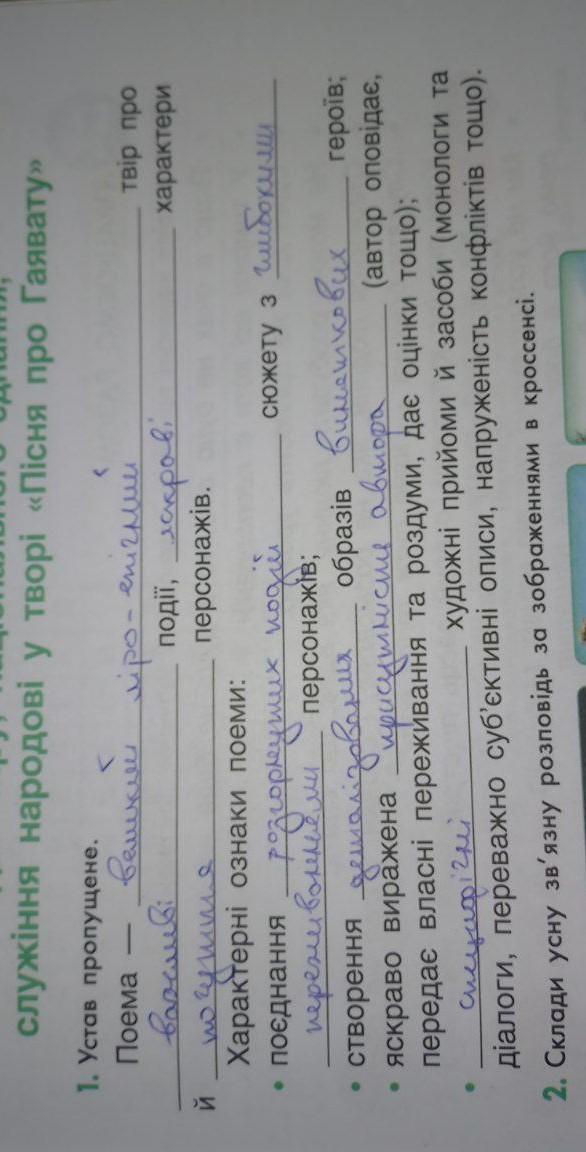 служіння народові у творі «Пісня про Гаявату»
1. Устав пропущене.
Поема — великий ліро-епічний твір про
важливі події, яскраві характери
й почуття персонажів.
Характерні ознаки поеми:
• поєднання розгорнутих подій сюжету з глибокими
переживаннями персонажів;
• створення деталізованих образів виняткових героїв;
• яскраво виражена присутність автора (автор оповідає,
передає власні переживання та роздуми, дає оцінки тощо);
• специфічні художні прийоми й засоби (монологи та
діалоги, переважно суб’єктивні описи, напруженість конфліктів тощо).
2. Склади усну зв’язну розповідь за зображеннями в кроссенсі.